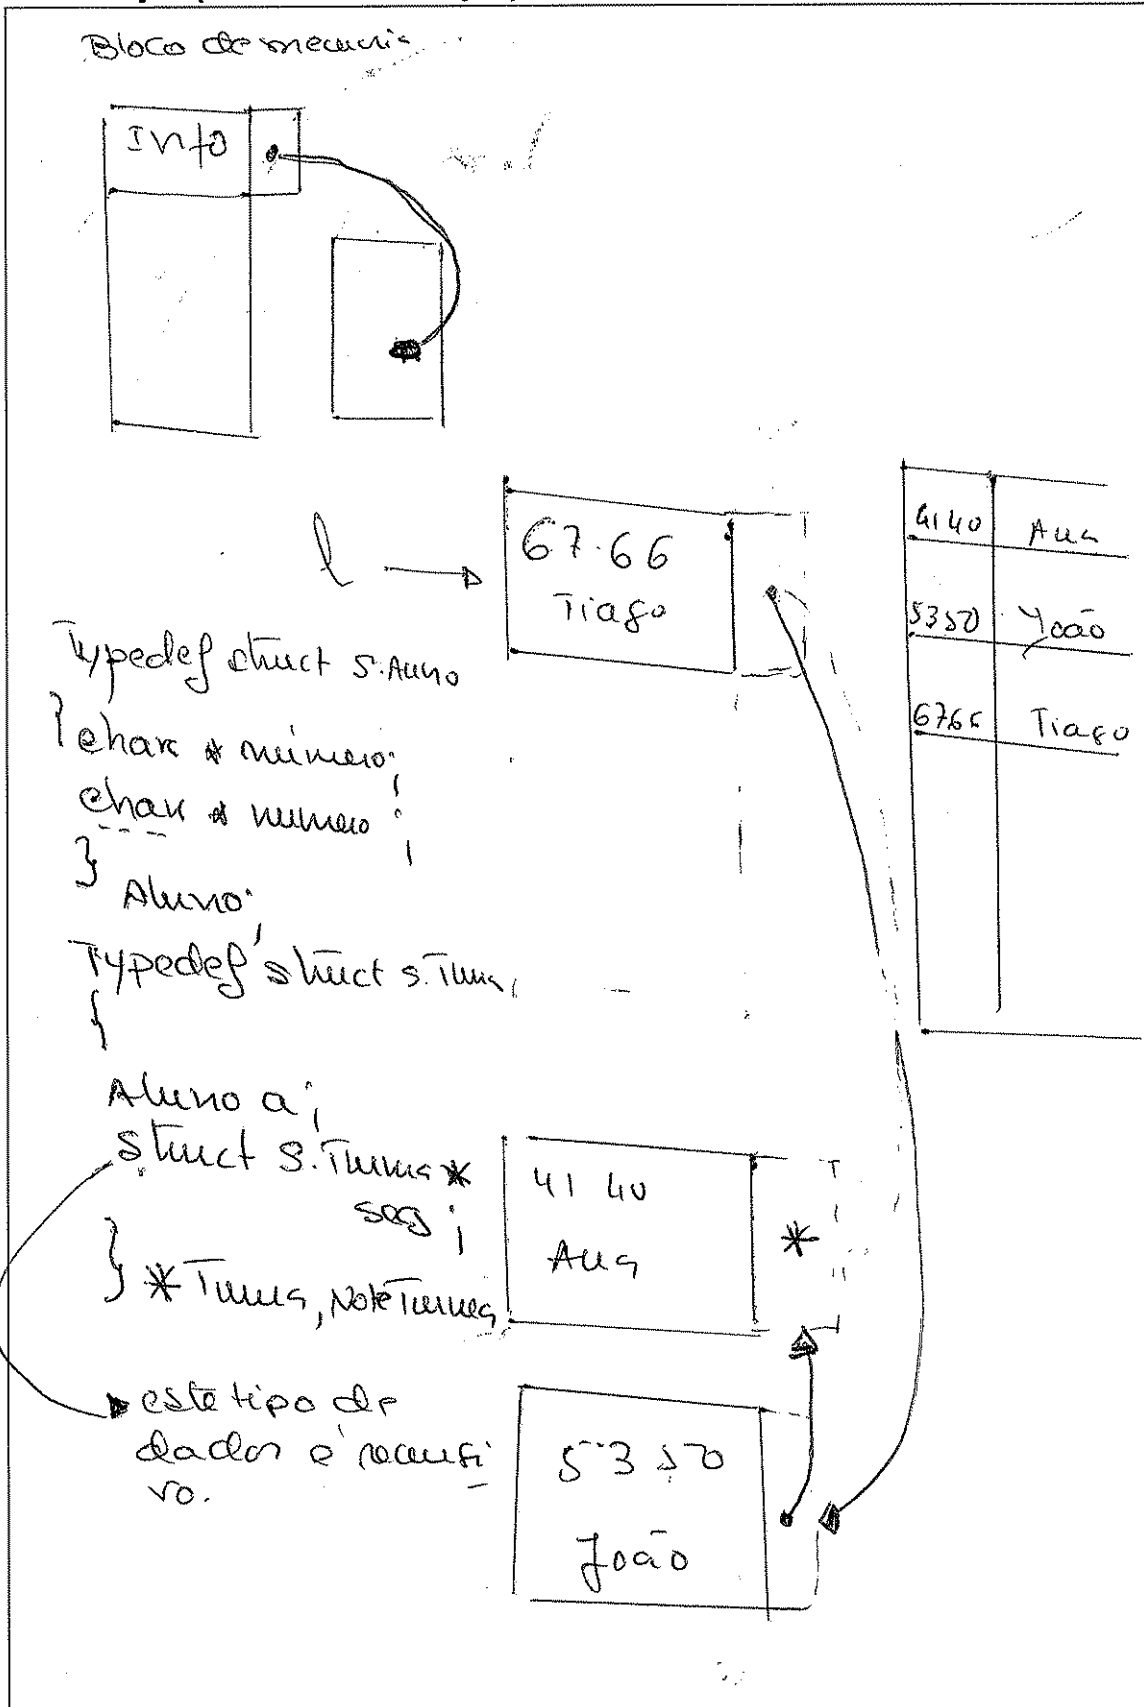 Bloco de memoria
Info
l
67.66
Tiago
4140 Ana
5350 João
6766 Tiago
Typedef struct s.Aluno
{ char * número;
char * numero;
}
Aluno;
Typedef struct s.Turma
{
Aluno a;
struct S.Turma *
seg;
} * Turma, NoteTurma
4140
Ana
*
este tipo de
dados é recursi
vo.
5350
João